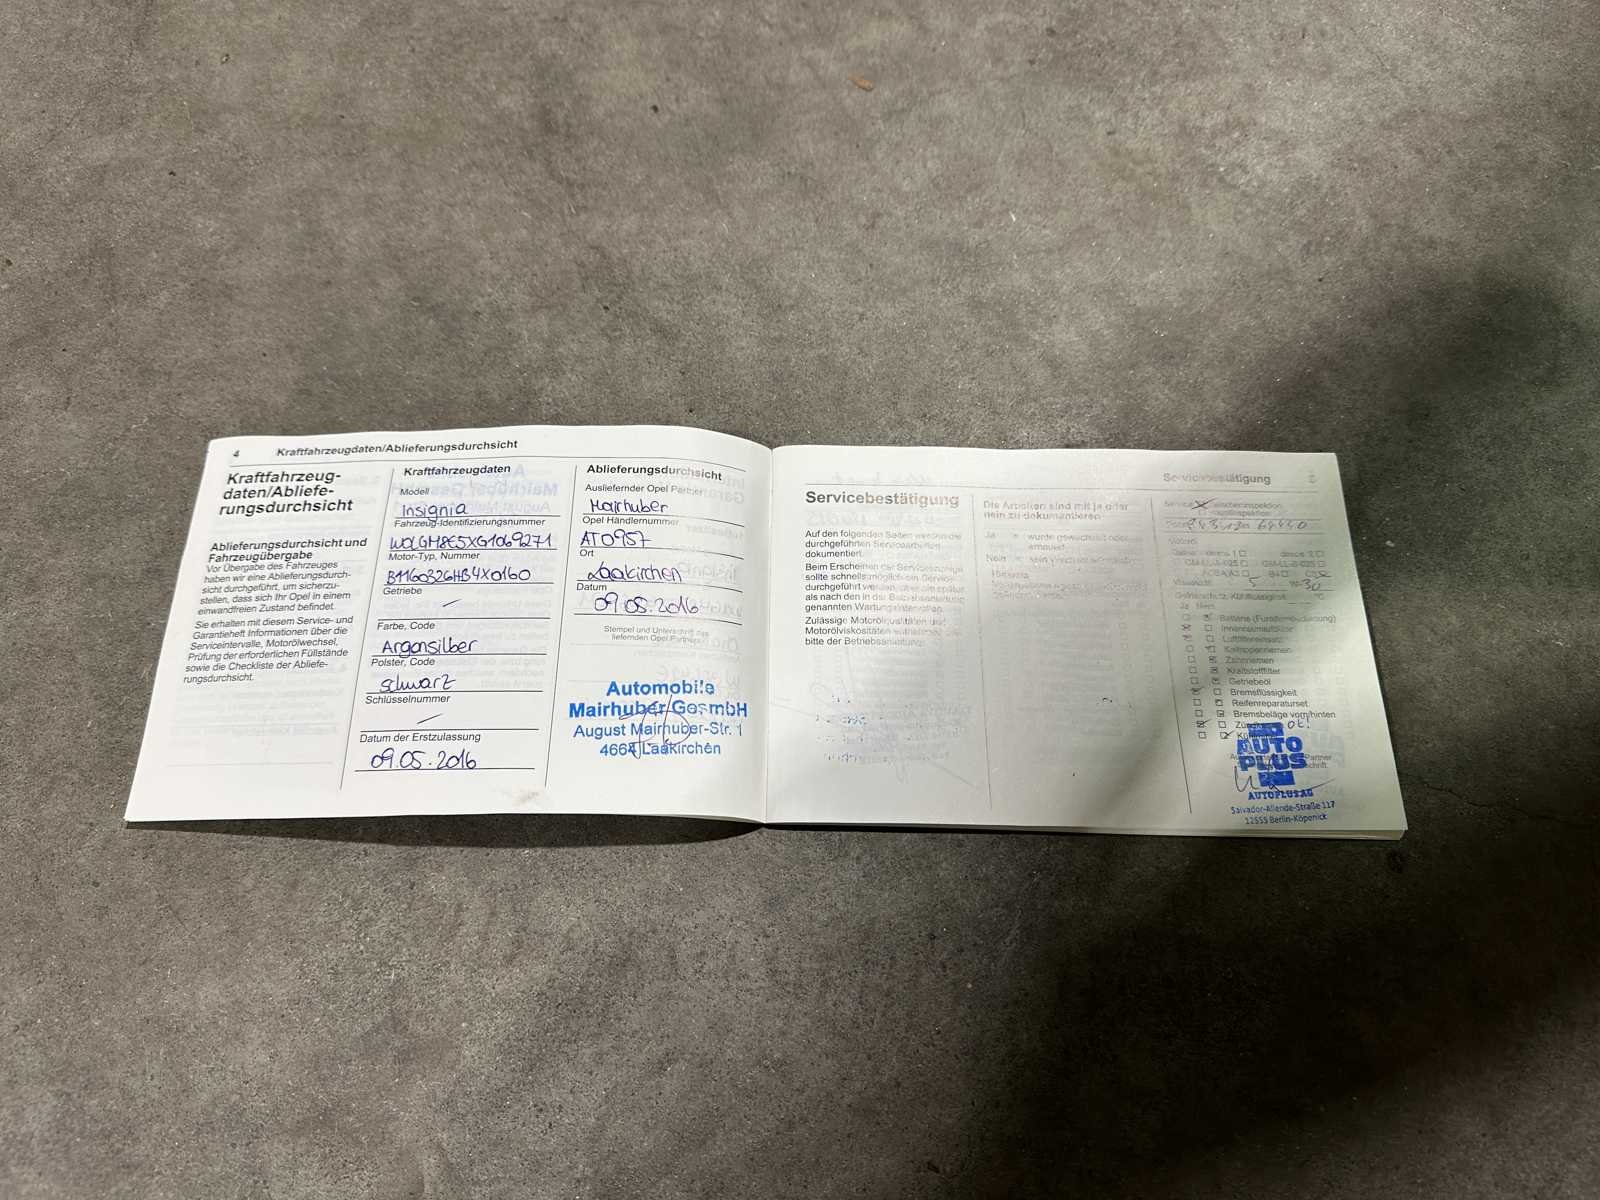 4 Kraftfahrzeugdaten/Ablieferungsdurchsicht
Kraftfahrzeug-
daten/Abliefe-
rungsdurchsicht
Ablieferungsdurchsicht und
Fahrzeugübergabe
Vor Übergabe des Fahrzeuges
haben wir eine Ablieferungsdurch-
sicht durchgeführt, um sicherzu-
stellen, dass sich Ihr Opel in einem
einwandfreien Zustand befindet.
Sie erhalten mit diesem Service- und
Garantieheft Informationen über die
Serviceintervalle, Motorölwechsel,
Prüfung der erforderlichen Füllstände
sowie die Checkliste der Abliefe-
rungsdurchsicht.
Kraftfahrzeugdaten
Modell
Insignia
Fahrzeug-Identifizierungsnummer
W0LGM8E5XG1069271
Motor-Typ, Nummer
B1160326HB4X0160
Getriebe
Farbe, Code
Argonsilber
Polster, Code
schwarz
Schlüsselnummer
Datum der Erstzulassung
09.05.2016
Ablieferungsdurchsicht
Ausliefernder Opel Partner
Mairhuber
Opel Händlernummer
AT0957
Ort
Laakirchen
Datum
09.05.2016
Stempel und Unterschrift des
liefernden Opel Partners
Automobile
Mairhuber GesmbH
August Mairhuber-Str. 1
4664 Laakirchen
Servicebestätigung
Servicebestätigung
Auf den folgenden Seiten werden die
durchgeführten Servicearbeiten
dokumentiert.
Beim Erscheinen der Serviceanzeige
sollte schnellstmöglich ein Service
durchgeführt werden, aber am spätes-
als nach den in der Betriebsanleitung
genannten Wartungsintervallen.
Zulässige Motorölqualitäten und
Motorölviskositäten entnehmen Sie
bitte der Betriebsanleitung.
Die Arbeiten sind mit ja oder
nein zu dokumentieren
Ja
wurde gewechselt oder
erneuert
Nein
Hinweis
Service
64440
dexos 1
dexos 2
5 W-30
Ja Nein
Batterie (Funkfernbedienung)
Innenraumluftfilter
Luftfiltereinsatz
Keilrippenriemen
Zahnriemen
Kraftstofffilter
Getriebeöl
Bremsflüssigkeit
Reifenreparaturset
Bremsbeläge vorn/hinten
AUTO
PLUS
AUTOPLUS AG
Salvador-Allende-Straße 117
12555 Berlin-Köpenick